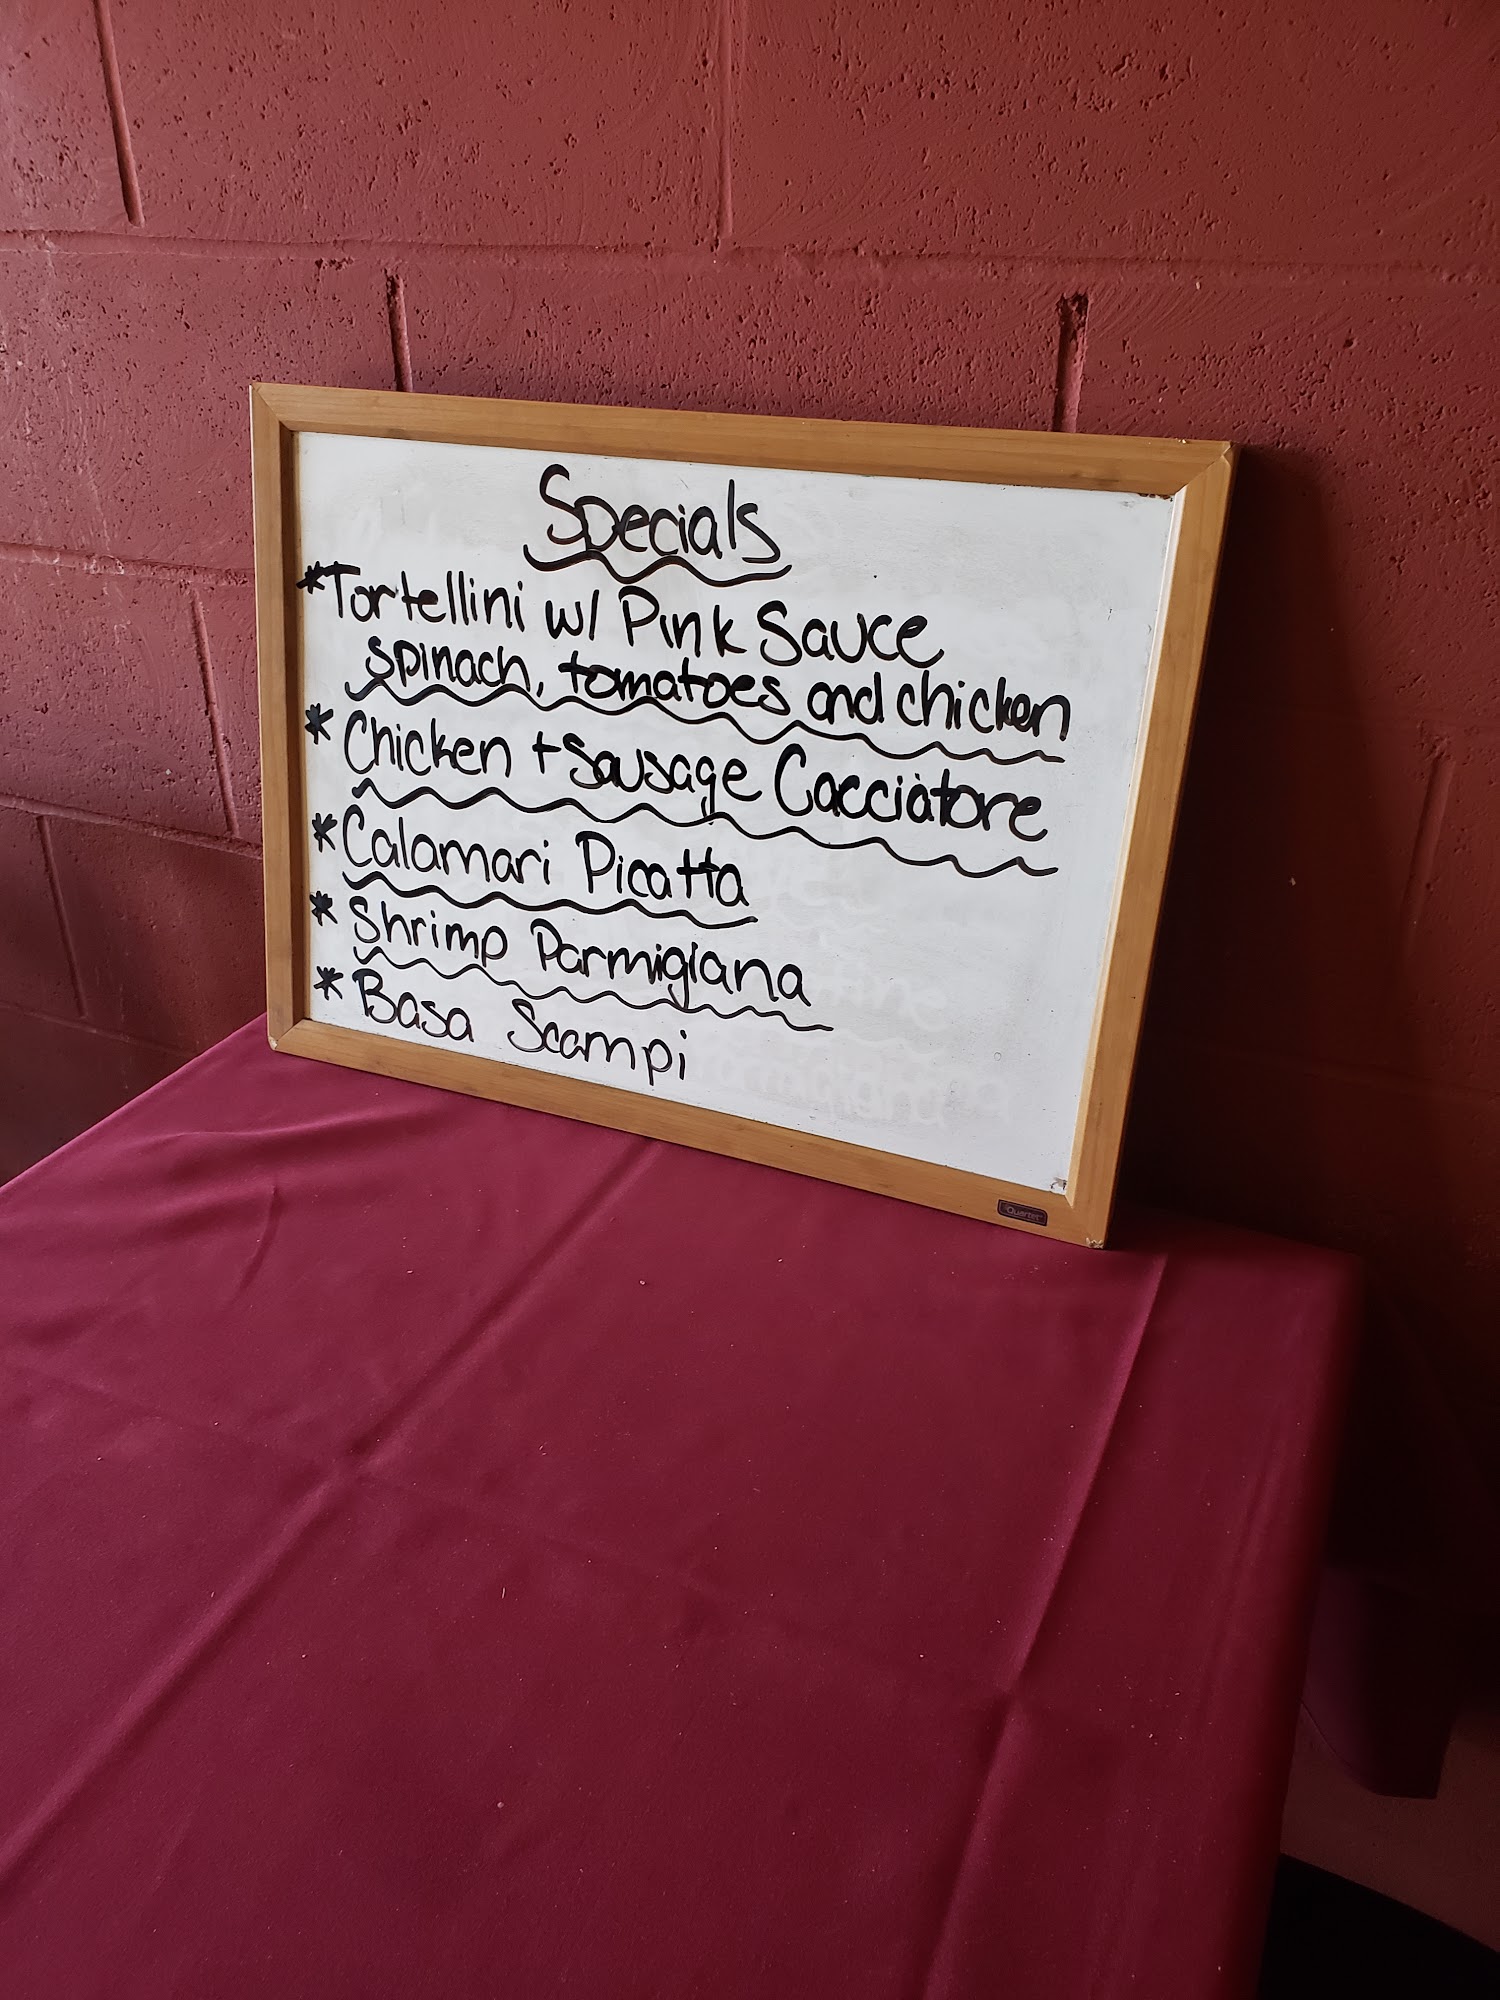 Specials
*Tortellini w/ Pink Sauce
spinach, tomatoes and chicken
* Chicken + Sausage Cacciatore
* Calamari Picatta
* Shrimp Parmigiana
* Basa Scampi
Quartet